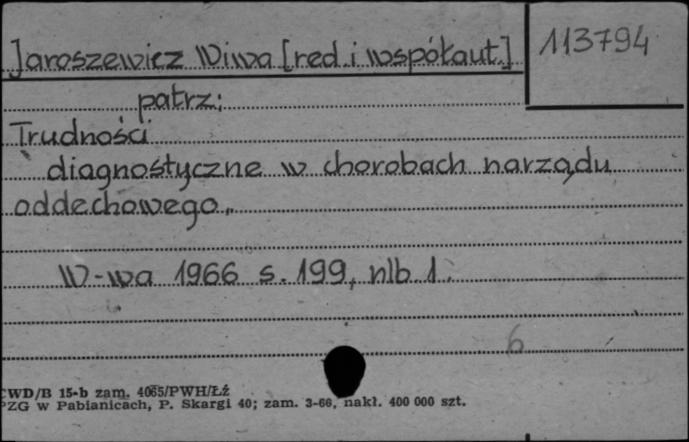 Jaroszewicz Wiwa [red. i współaut.]
113794
patrz:
Trudności
diagnostyczne w chorobach narządu
oddechowego.
W-wa 1966 s. 199, nlb. 1.
6
CWD/B 15-b zam. 4065/PWH/Łź
PZG w Pabianicach, P. Skargi 40; zam. 3-66, nakł. 400 000 szt.